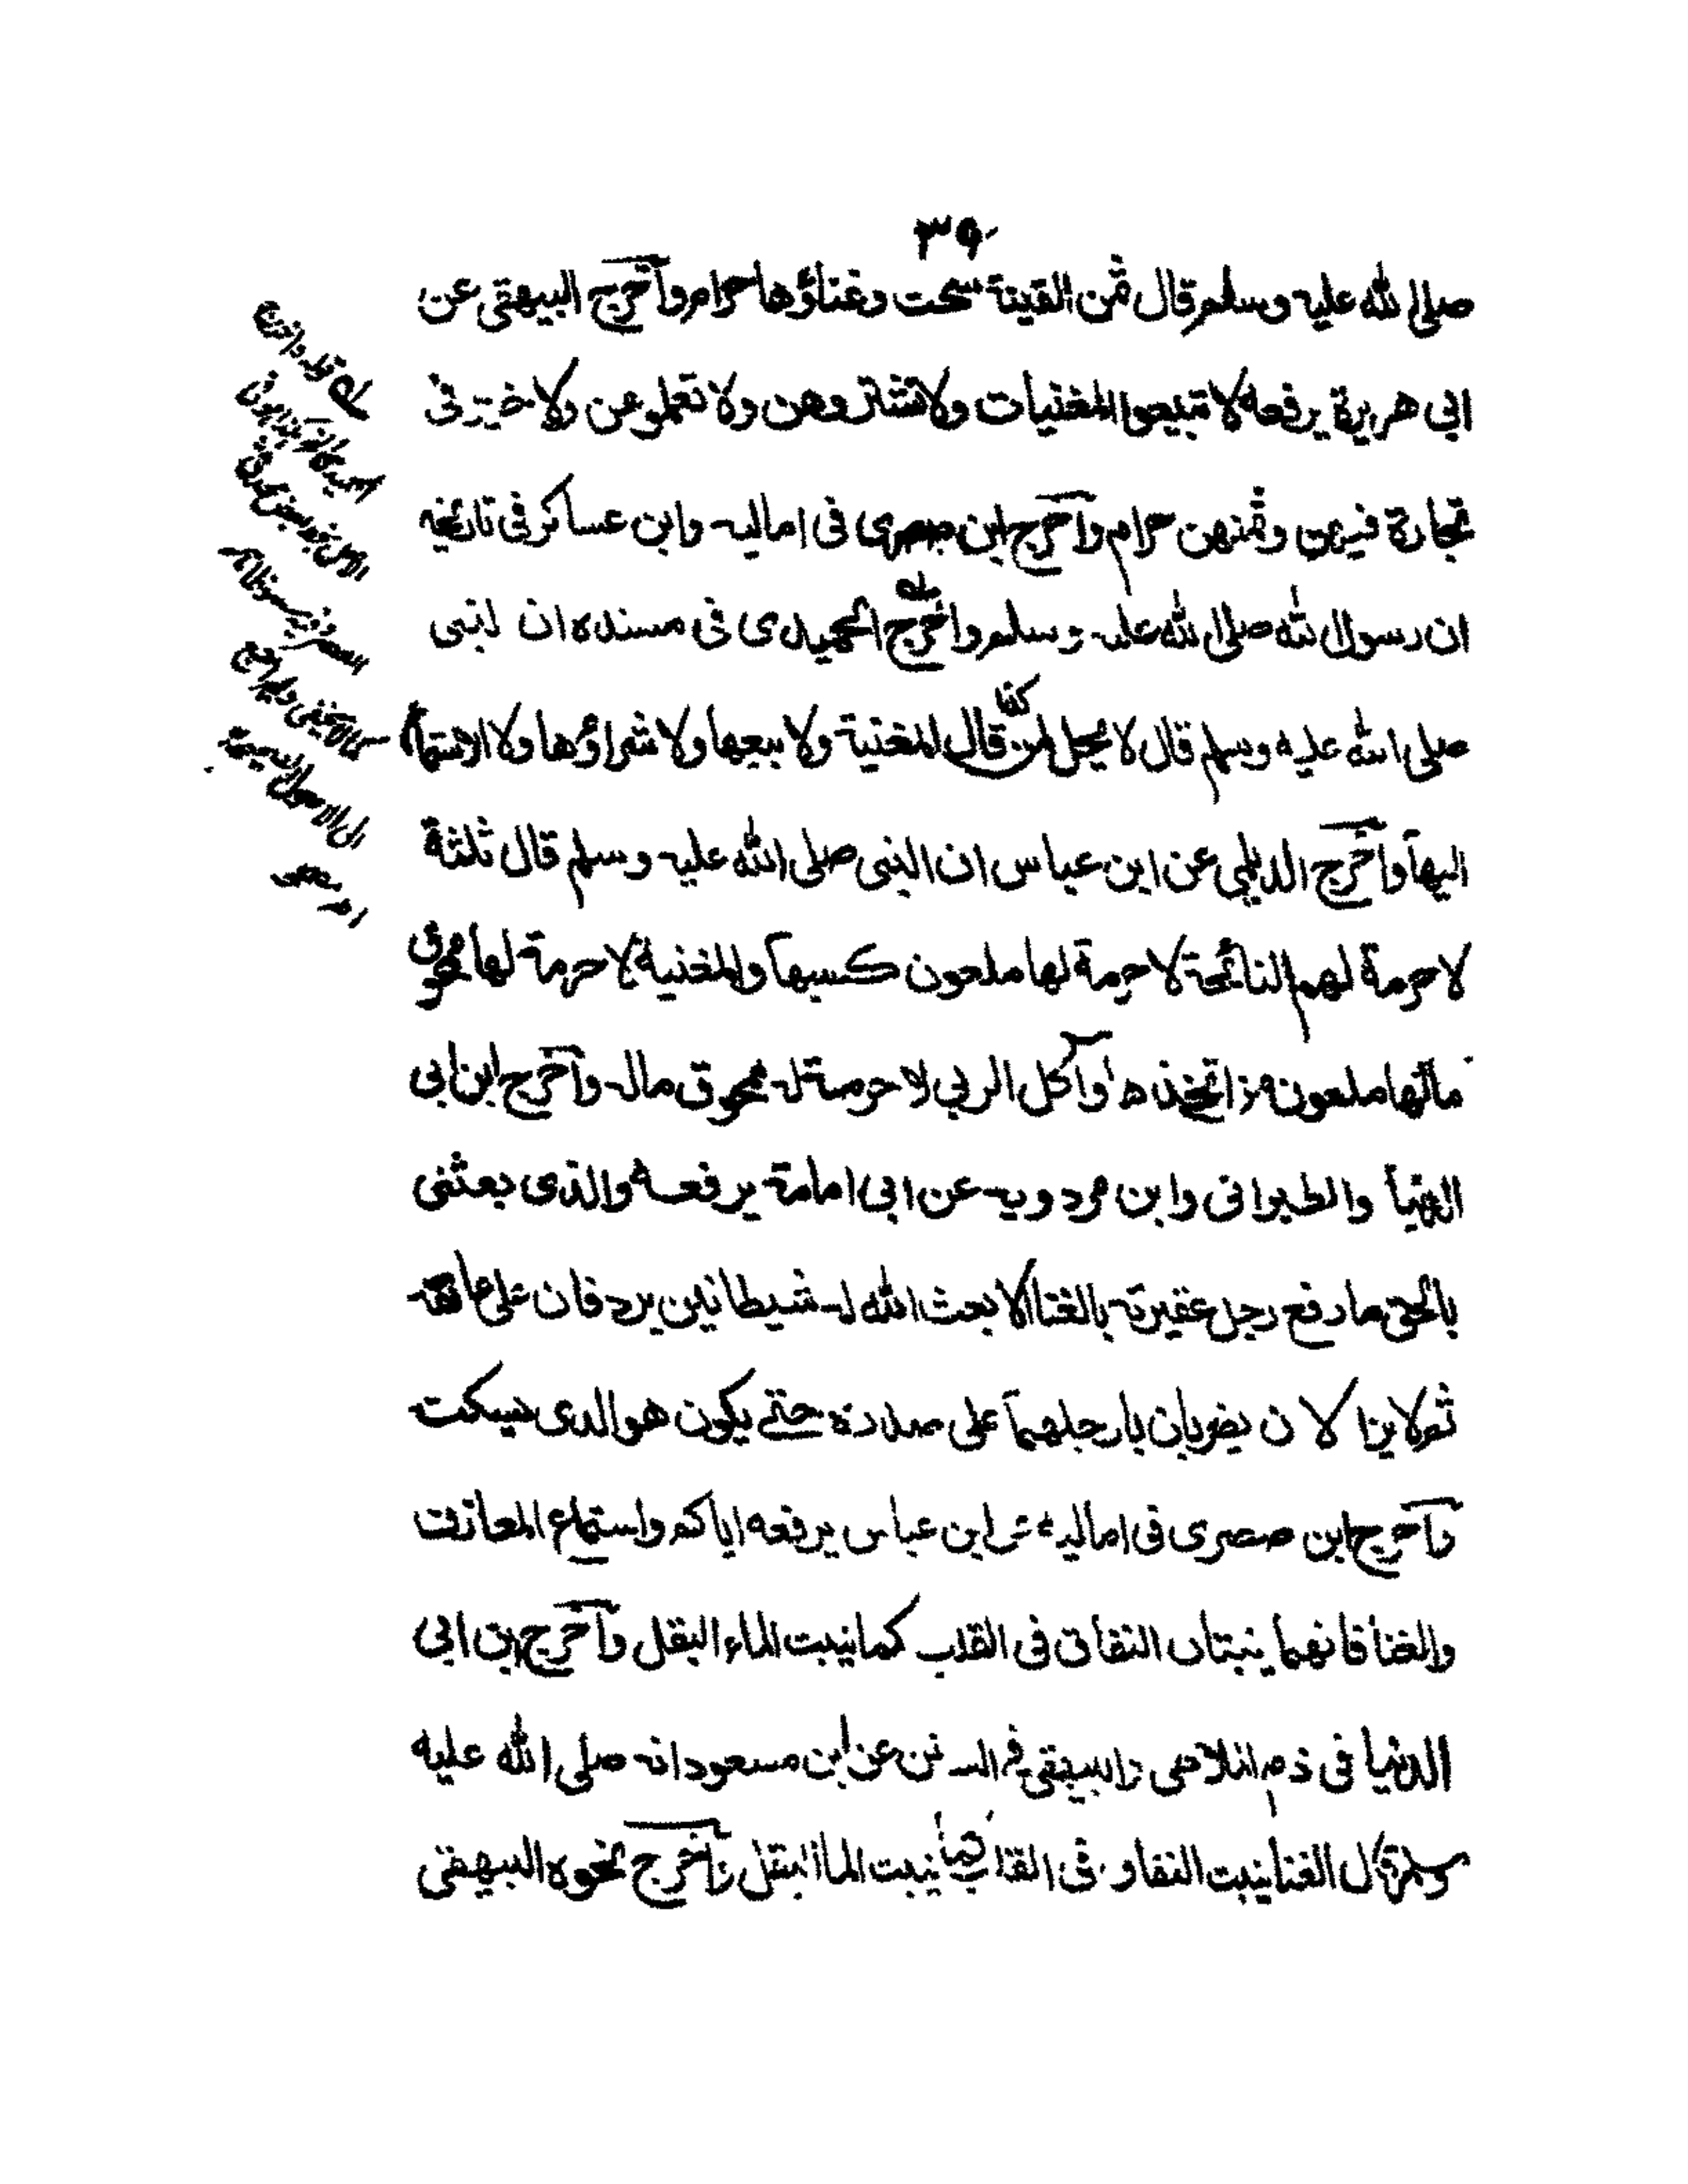 ٣٩
صلى الله عليه وسلم قال ثمن القينة سحت وغناؤها حرام وأخرج البيهقى عن
ابى هريرة يرفعه لا تبيعوا المغنيات ولا تشتروهن ولا تعلموهن ولا خير فى
تجارة فيهن وثمنهن حرام وأخرج ابن صصرى فى اماليه وابن عساكر فى تاريخه
ان رسول الله صلى الله عليه وسلم وأخرج الحميدى فى مسنده ان النبى
صلى الله عليه وسلم قال لا يحل ثمن قال المغنية ولا بيعها ولا شراؤها ولا الاستماع
اليها وأخرج الديلمى عن ابن عباس ان النبى صلى الله عليه وسلم قال ثلثة
لا حرمة لهم النائحة لا حرمة لها ملعون كسبها والمغنية لا حرمة لها ممحوق
مالها ملعون من اتخذها وآكل الربى لا حرمة له ممحوق ماله وأخرج ابن ابى
الدنيا والطبرانى وابن مردويه عن ابى امامة يرفعه والذى بعثنى
بالحق ما رفع رجل عقيرته بالغنا الا بعث الله له شيطانين يردفان على عاتقه
ثم لا يزالان يضربان بارجلهما على صدره حتى يكون هو الذى يسكت
وأخرج ابن صصرى فى اماليه عن ابن عباس يرفعه اياكم واستماع المعازف
والغنا فانهما ينبتان النفاق فى القلب كما ينبت الماء البقل وأخرج ابن ابى
الدنيا فى ذم الملاهى والبيهقى فى السنن عن ابن مسعود انه صلى الله عليه
وسلم قال الغنا ينبت النفاق فى القلب كما ينبت الما البقل وأخرج نحوه البيهقى